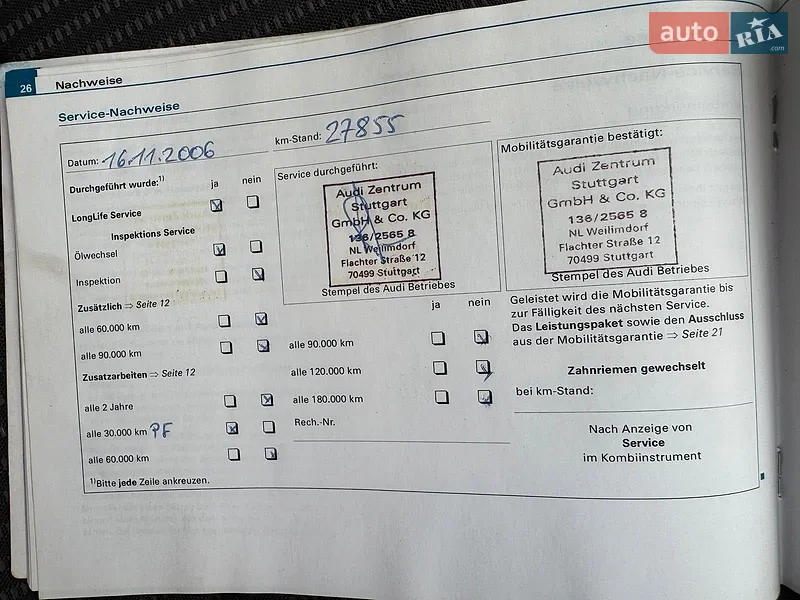 auto RIA .com
26 Nachweise
Service-Nachweise
Datum: 16.11.2006
km-Stand: 27855
Durchgeführt wurde:1)
ja nein
LongLife Service
Inspektions Service
Ölwechsel
Inspektion
Zusätzlich ⇒ Seite 12
alle 60.000 km
alle 90.000 km
Zusatzarbeiten ⇒ Seite 12
alle 2 Jahre
alle 30.000 km PF
alle 60.000 km
1)Bitte jede Zeile ankreuzen.
Service durchgeführt:
Audi Zentrum
Stuttgart
GmbH & Co. KG
136/2565 8
NL Weilimdorf
Flachter Straße 12
70499 Stuttgart
Stempel des Audi Betriebes
ja nein
alle 90.000 km
alle 120.000 km
alle 180.000 km
Rech.-Nr.
Mobilitätsgarantie bestätigt:
Audi Zentrum
Stuttgart
GmbH & Co. KG
136/2565 8
NL Weilimdorf
Flachter Straße 12
70499 Stuttgart
Stempel des Audi Betriebes
Geleistet wird die Mobilitätsgarantie bis
zur Fälligkeit des nächsten Service.
Das Leistungspaket sowie den Ausschluss
aus der Mobilitätsgarantie ⇒ Seite 21
Zahnriemen gewechselt
bei km-Stand:
Nach Anzeige von
Service
im Kombiinstrument